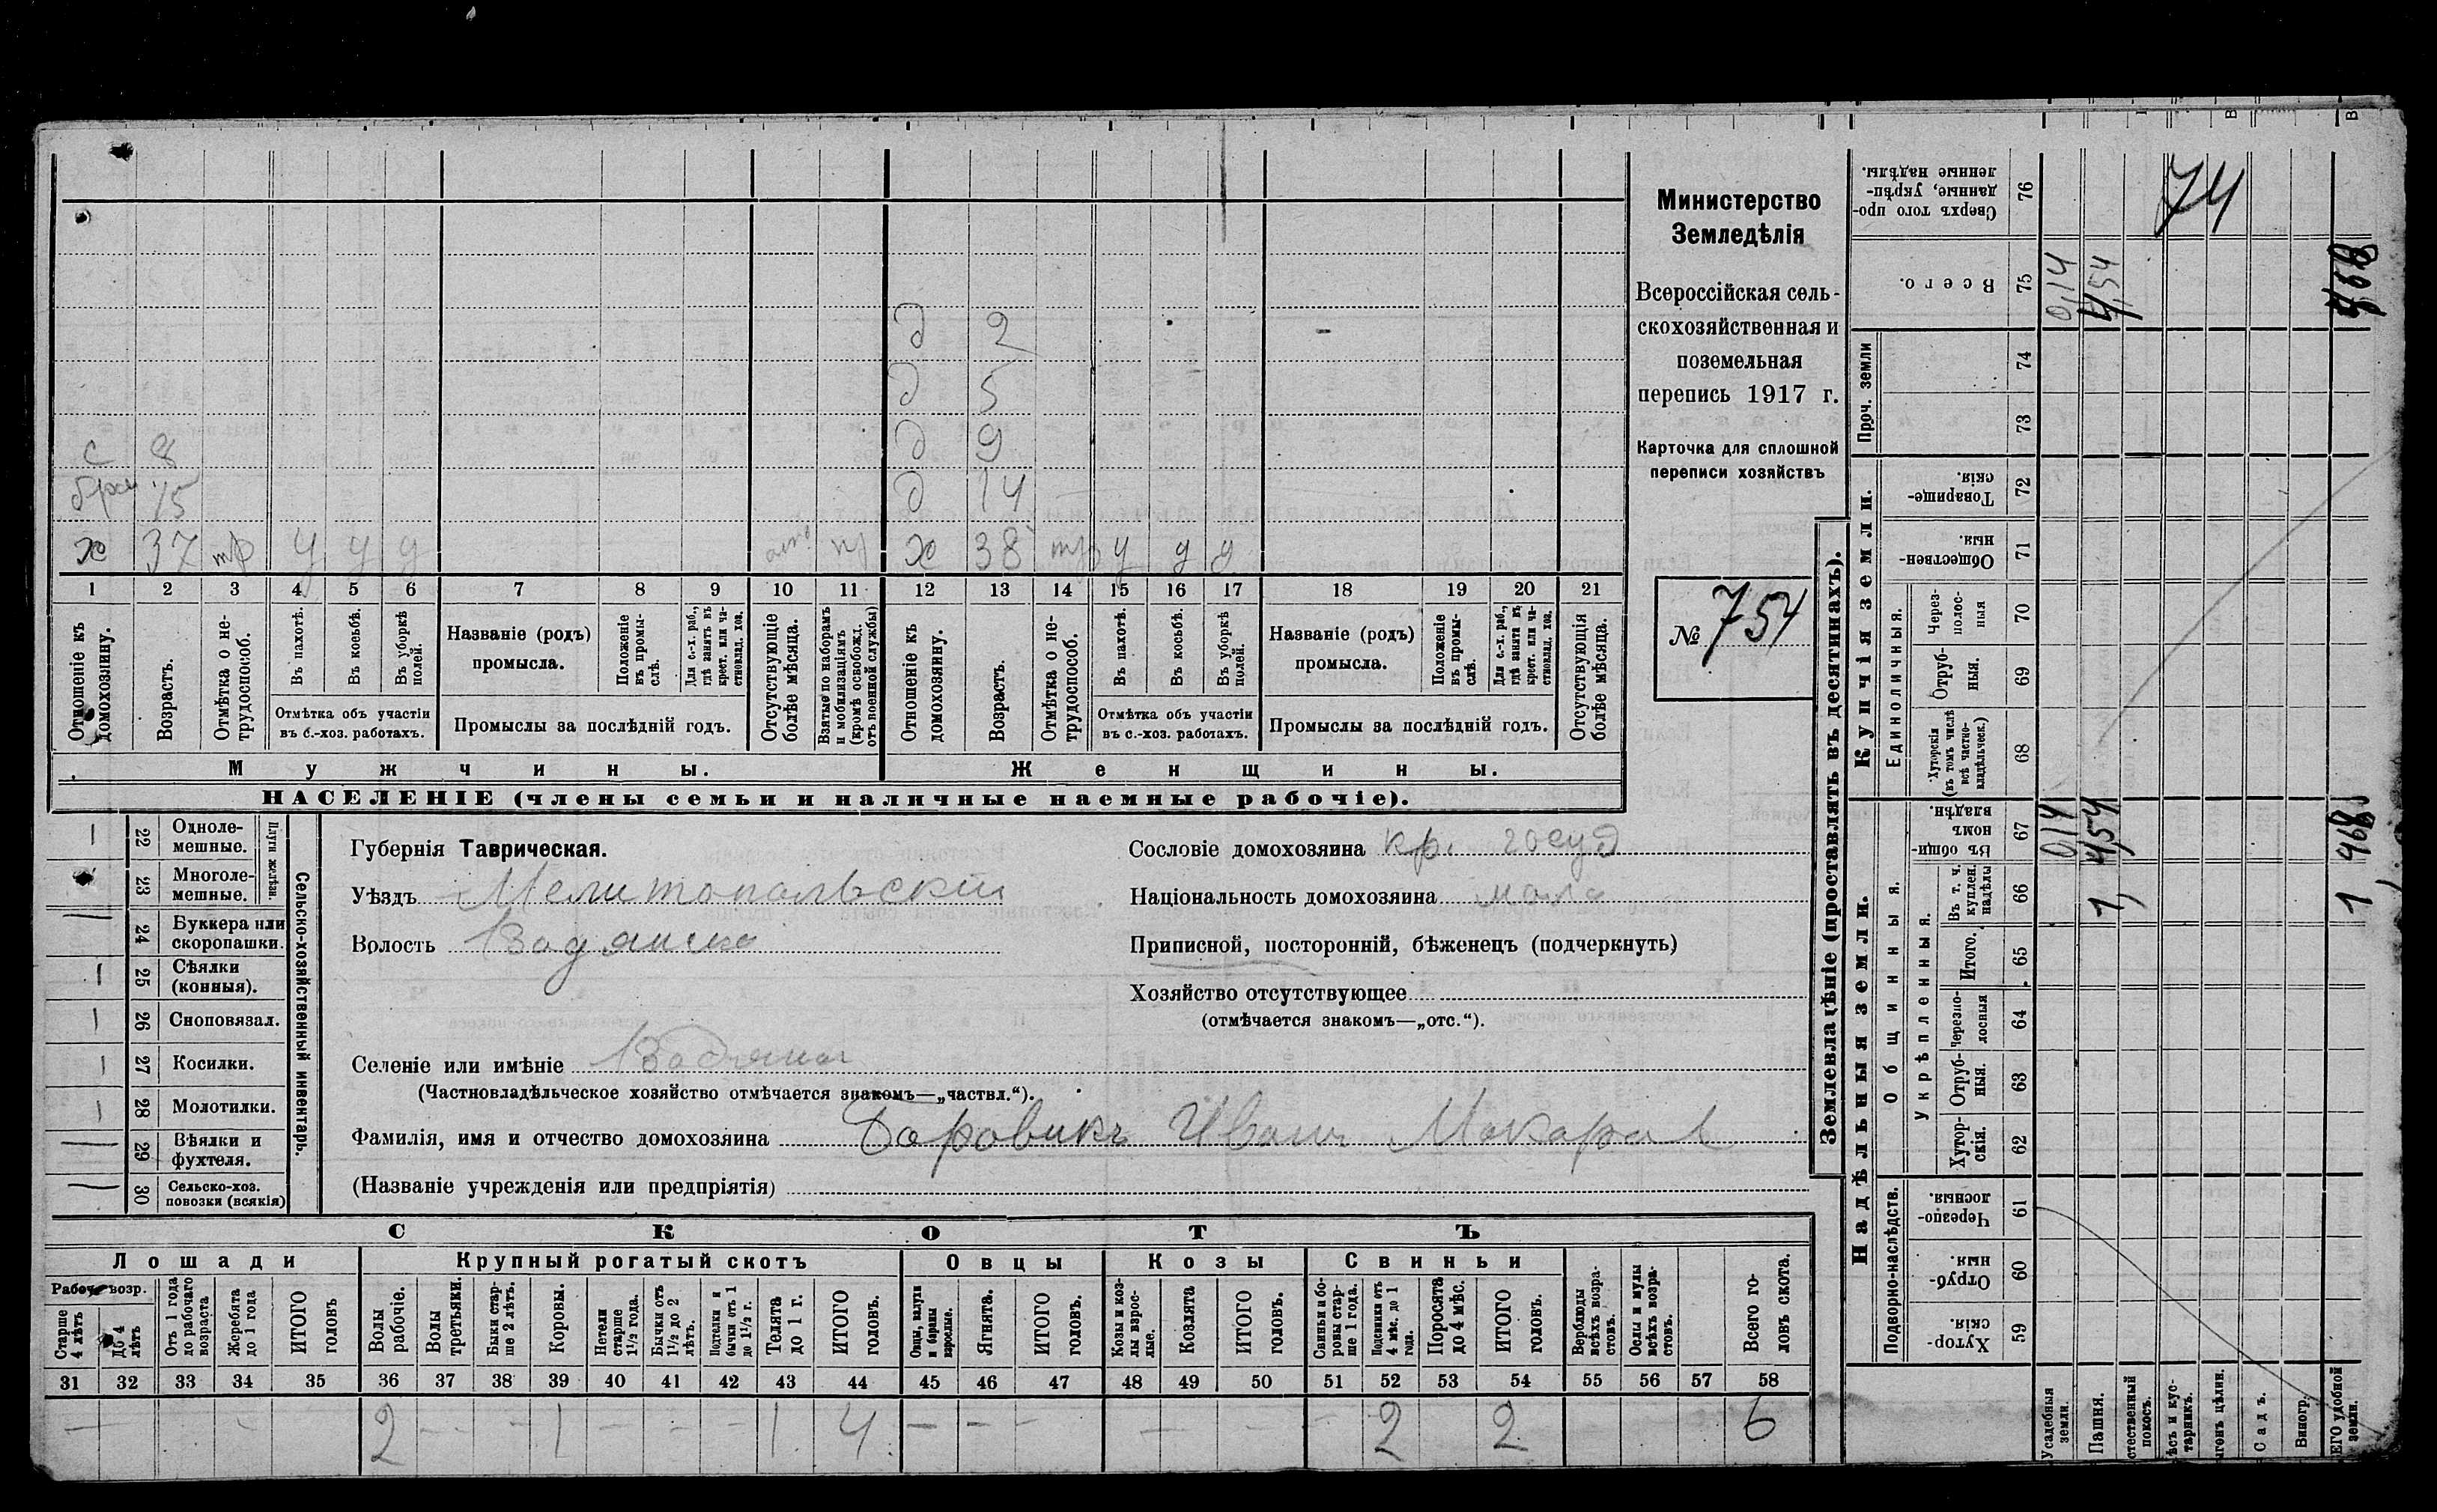 Министерство
Земледѣлія
Всероссійская сель-
скохозяйственная и
поземельная
перепись 1917 г.
Карточка для сплошной
переписи хозяйствъ
№ 754
д 2
д 5
с 8 д 9
15 д 14
х 37 тр у у у х 38 тр у у у
1 2 3 4 5 6 7 8 9 10 11 12 13 14 15 16 17 18 19 20 21
Отношеніе къ домохозяину.
Возрастъ.
Отмѣтка о не-трудоспособ.
Въ пахотѣ.
Въ косьбѣ.
Въ уборкѣ полей.
Отмѣтка объ участіи
въ с.-хоз. работахъ.
Названіе (родъ)
промысла.
Положеніе въ промы-слѣ.
Для с.-х. раб., гдѣ занятъ въ крест. или ча-стновлад. хоз.
Промыслы за послѣдній годъ.
Отсутствующіе болѣе мѣсяца.
Взятые по наборамъ и мобилизаціямъ (кромѣ освобожд. отъ военной службы)
Отношеніе къ домохозяину.
Возрастъ.
Отмѣтка о не-трудоспособ.
Въ пахотѣ.
Въ косьбѣ.
Въ уборкѣ полей.
Отмѣтка объ участіи
въ с.-хоз. работахъ.
Названіе (родъ)
промысла.
Положеніе въ промы-слѣ.
Для с.-х. раб., гдѣ занята въ крест. или ча-стновлад. хоз.
Промыслы за послѣдній годъ.
Отсутствующія болѣе мѣсяца.
Мужчины. Женщины.
НАСЕЛЕНІЕ (члены семьи и наличные наемные рабочіе).
Сельско-хозяйственный инвентарь.
Плуги желѣзн.
22 Одноле-мешные.
23 Многоле-мешные.
24 Буккера или скоропашки.
25 Сѣялки (конныя).
26 Сноповязал.
27 Косилки.
28 Молотилки.
29 Вѣялки и фухтеля.
30 Сельско-хоз. повозки (всякія)
Губернія Таврическая.
Уѣздъ Мелитопольскій
Волость
Селеніе или имѣніе
(Частновладѣльческое хозяйство отмѣчается знакомъ—„частвл.“).
Фамилія, имя и отчество домохозяина Боровикъ Иванъ Макаров
(Названіе учрежденія или предпріятія)
Сословіе домохозяина кр. госуд
Національность домохозяина мало
Приписной, посторонній, бѣженецъ (подчеркнуть)
Хозяйство отсутствующее
(отмѣчается знакомъ—„отс.“).
СКОТЪ
Лошади Крупный рогатый скотъ Овцы Козы Свиньи
Рабоч. возр.
Старше 4 лѣтъ
До 4 лѣтъ
Отъ 1 года до рабочаго возраста
Жеребята до 1 года
ИТОГО головъ
Волы рабочіе.
Волы третьяки.
Быки стар-ше 2 лѣтъ.
Коровы.
Нетели старше 1½ года.
Бычки отъ 1½ до 2 лѣтъ.
Подтелки и бычки отъ 1 до 1½ г.
Телята до 1 г.
ИТОГО головъ.
Овцы, валухи и бараны взрослые.
Ягнята.
ИТОГО головъ.
Козы и коз-лы взрос-лые.
Козлята
ИТОГО головъ.
Свиньи и бо-ровы стар-ше 1 года.
Подсвинки отъ 4 мѣс. до 1 года.
Поросята до 4 мѣс.
ИТОГО головъ.
Верблюды всѣхъ возра-стовъ.
Ослы и мулы всѣхъ возра-стовъ.
Всего го-ловъ скота.
31 32 33 34 35 36 37 38 39 40 41 42 43 44 45 46 47 48 49 50 51 52 53 54 55 56 57 58
— — 2 — — — 1 — — — 1 4 — — — — — — 2 2 6
Землевладѣніе (проставлять въ десятинахъ).
Надѣльныя земли. Купчія земли. Проч. земли
Подворно-наслѣдств.
Общинныя.
Укрѣпленныя.
Единоличныя.
Хутор-скія. 59
Отруб-ныя. 60
Черезпо-лосныя. 61
Хутор-скія. 62
Отруб-ныя. 63
Черезпо-лосныя 64
Итого. 65
Въ т. ч. куплен. надѣлы 66
Въ общи-номъ владѣн. 67
Хуторскія (въ томъ числѣ всѣ частно-владѣльческ.) 68
Отруб-ныя. 69
Через-полос-ныя 70
Обществен-ныя. 71
Товарище-скія. 72
73
74
Всего. 75
Сверхъ того про-данные, укрѣп-ленные надѣлы. 76
Усадебныя земли. 0,14 0,14
Пашня. 4,54 4,54
Естественный покосъ.
Садъ.
Виногр.
74
4,68